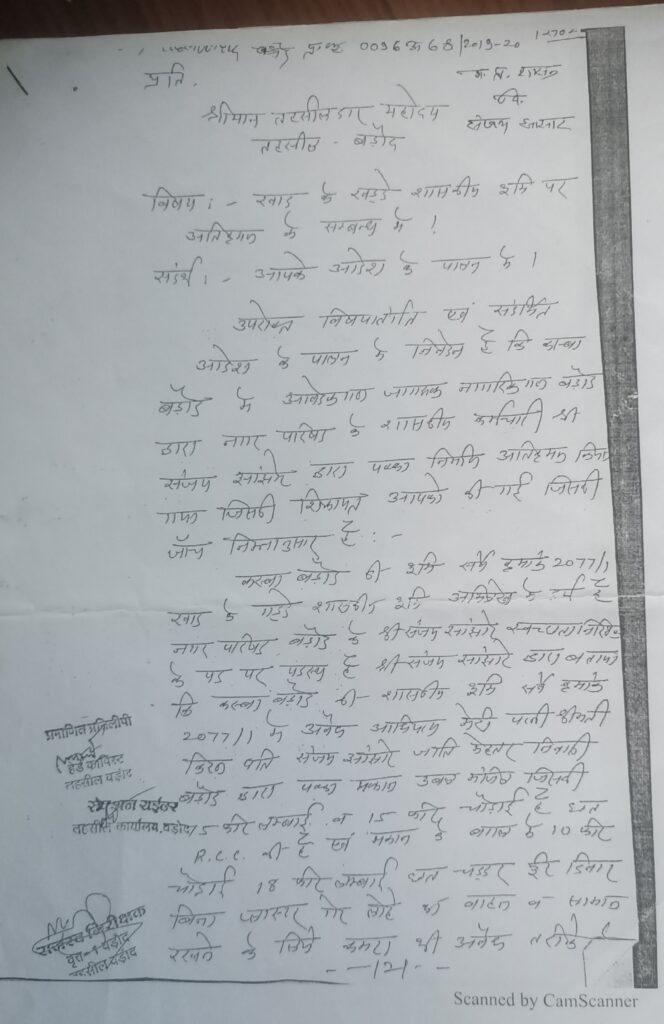 प्र.क्र. 0096 अ 68/2019-20
प्रति,
म.प्र. शासन
वि.
संजय सांसोर
श्रीमान तहसीलदार महोदय
तहसील - बड़ौद
विषय :- खाड के खड्डे शासकीय भूमि पर
अतिक्रमण के सम्बन्ध में ।
संदर्भ :- आपके आदेश के पालन में ।
उपरोक्त विषयांतर्गत एवं संदर्भित
आदेश के पालन में निवेदन है कि कस्बा
बड़ौद में आवेदकगण जागरूक नागरिकगण बड़ौद
द्वारा नगर परिषद के शासकीय कर्मचारी श्री
संजय सांसोर द्वारा पक्का निर्माण अतिक्रमण किया
गया जिसकी शिकायत आपको की गई जिसकी
जाँच निम्नानुसार है :-
कस्बा बड़ौद की भूमि सर्वे क्रमांक 2077/1
खाड के गड्डे शासकीय भूमि अभिलेख में दर्ज है
नगर परिषद बड़ौद के श्री संजय सांसोर
के पद पर पदस्थ है श्री संजय सांसोर द्वारा बताया
कि कस्बा बड़ौद की शासकीय भूमि सर्वे क्रमांक
2077/1 में मेरी पत्नी श्रीमती
किरण पति संजय सांसोर जाति मेहतर निवासी
बड़ौद द्वारा पक्का मकान डबल मंजिल जिसकी
फीट लम्बाई व 15 फीट चौड़ाई है छत
R.C.C. की है एवं मकान के बगल में 10 फीट
चौड़ाई 18 फीट लम्बाई छत चद्दर ईंट दिवार
बिना प्लास्टर गेट लोहे का वाहन व सामान
रखने के लिये कमरा भी अवैध तरीके
--121--
प्रमाणित प्रतिलिपी
हेड कॉपिस्ट
तहसील बड़ौद
तहसील कार्यालय, बड़ौद
राजस्व निरीक्षक
वृत्त-1 बड़ौद
तहसील बड़ौद
Scanned by CamScanner